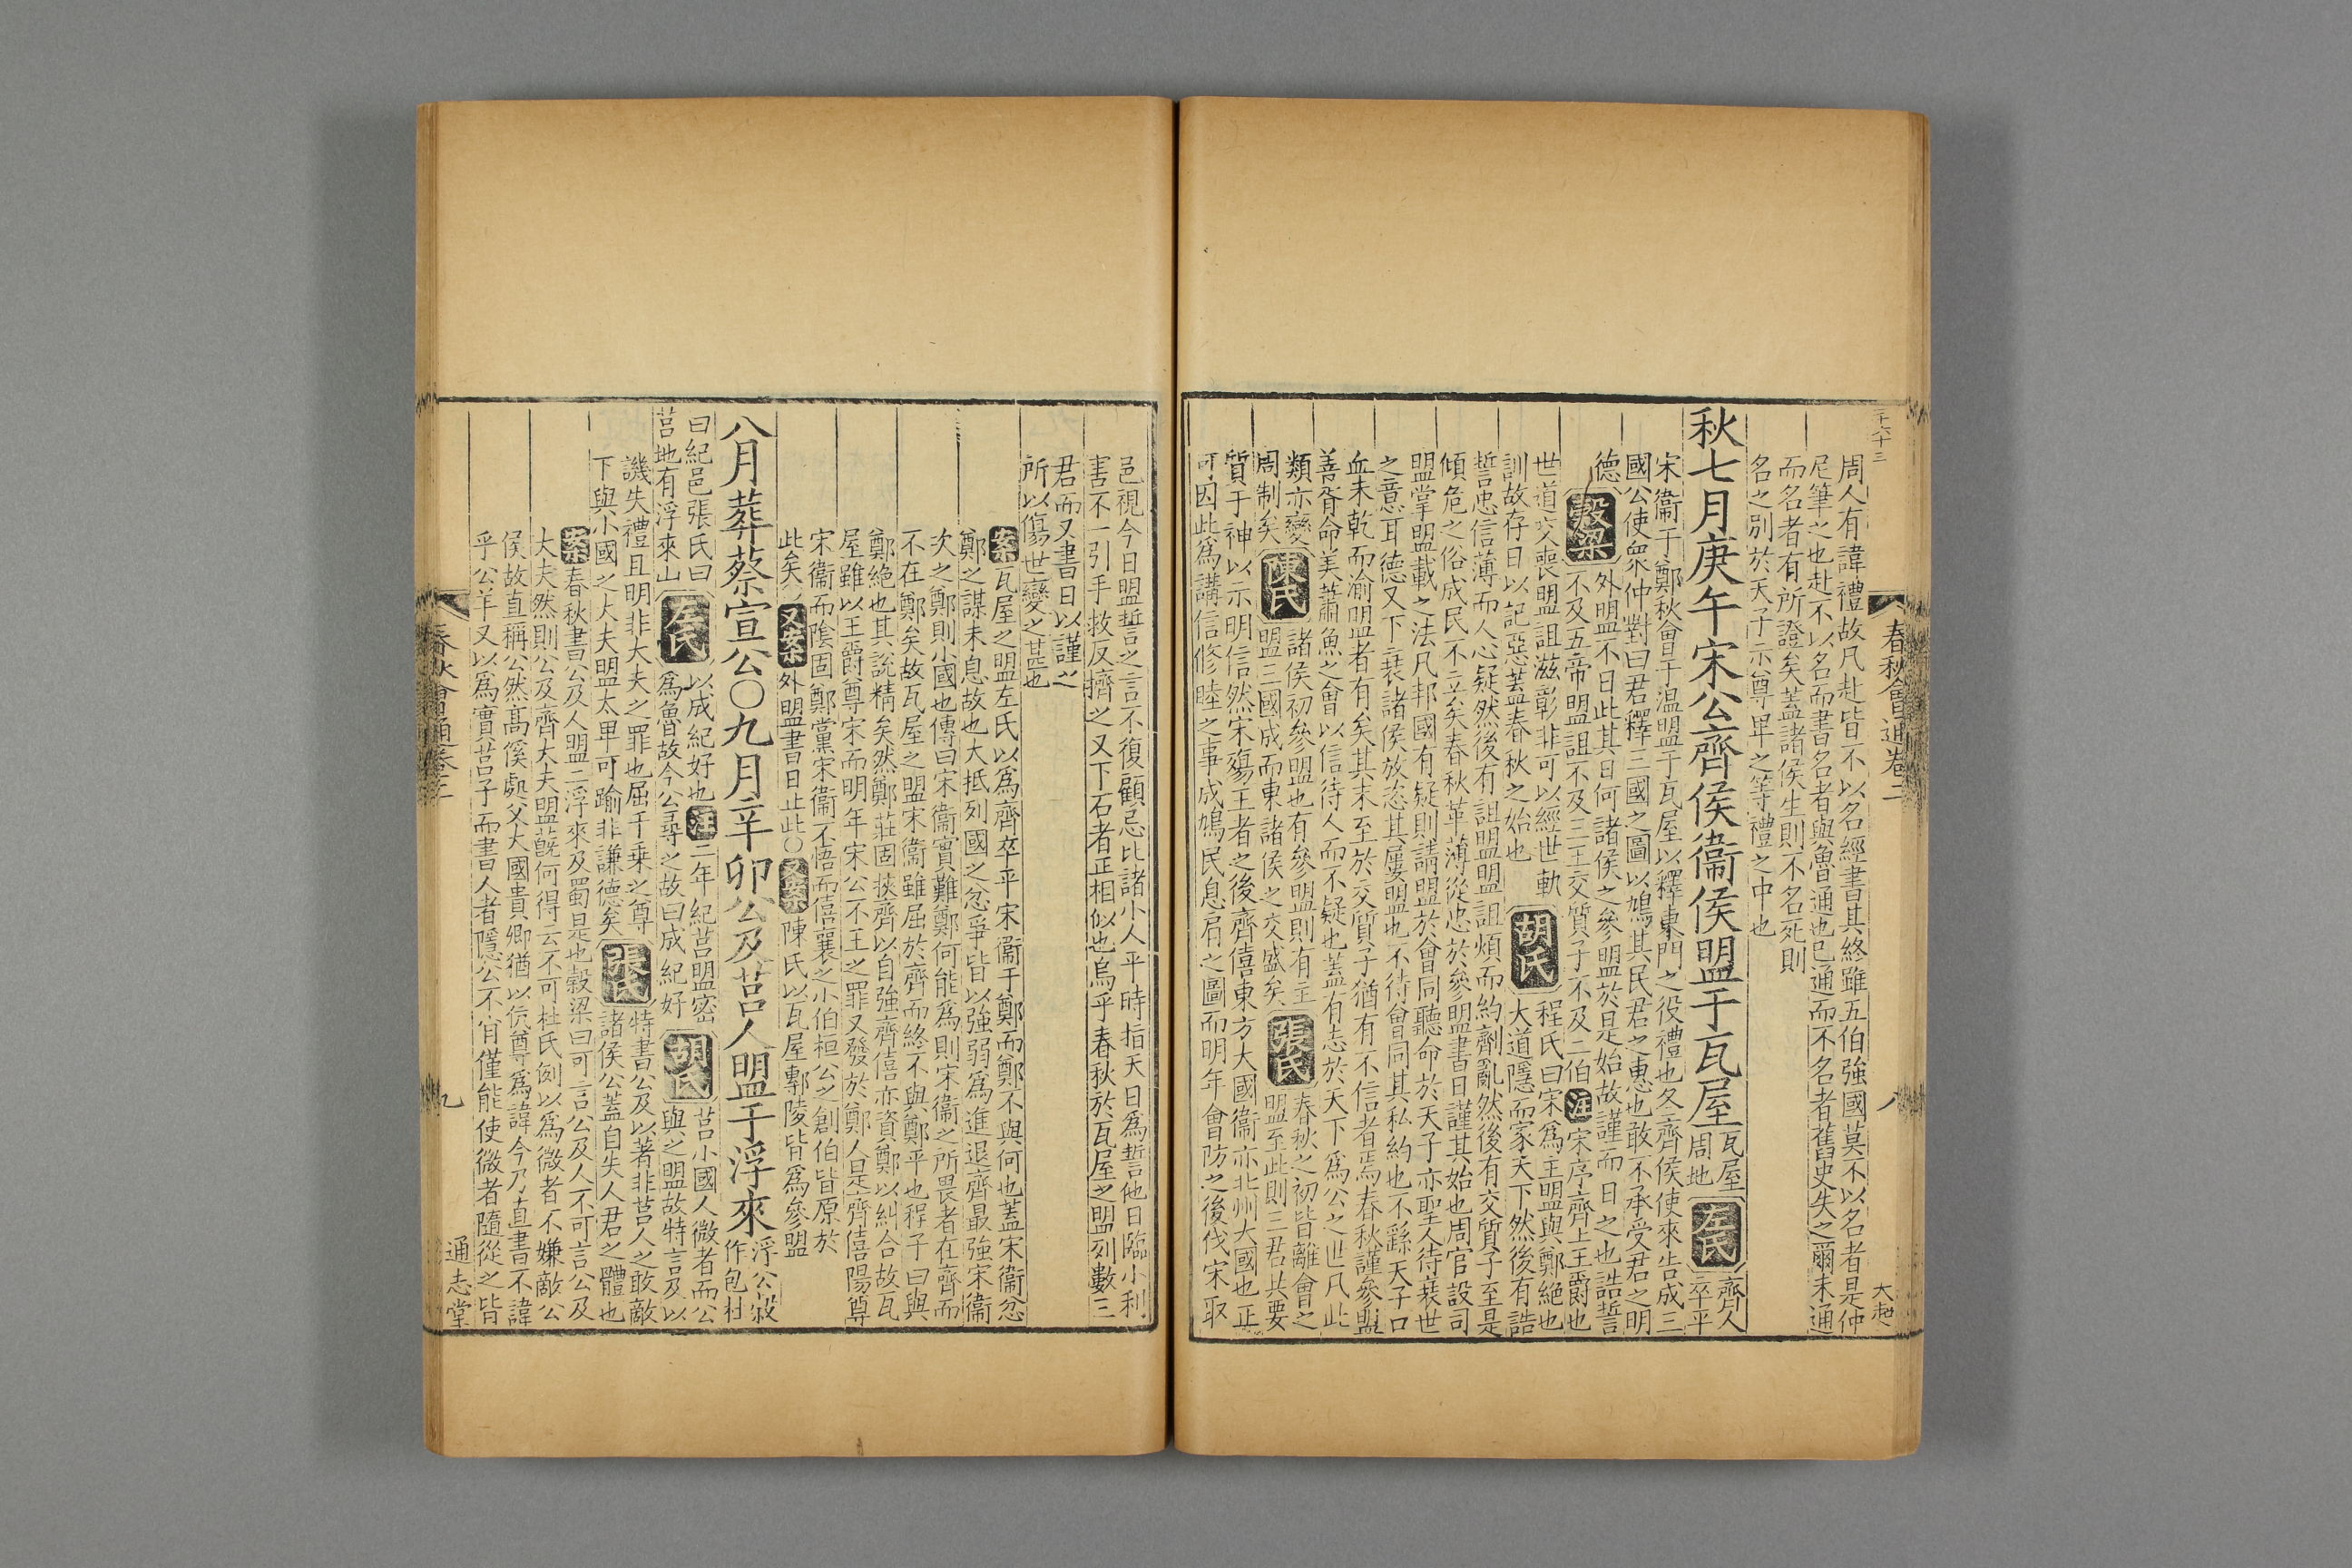 二十六十三
周人有諱禮故凡赴皆不以名經書其終雖五伯強國莫不以名者是仲
尼筆之也赴不以名而書名者與魯通也已通而不名者舊史失之爾未通
而名者有所證矣蓋諸侯生則不名死則
名之別於天子示尊卑之等禮之中也
秋七月庚午宋公齊侯衞侯盟于瓦屋
瓦屋
周地
左氏
齊人
卒平
宋衞于鄭秋會于温盟于瓦屋以釋東門之役禮也冬齊侯使來告成三
國公使衆仲對曰君釋三國之圖以鳩其民君之惠也敢不承受君之明
德
穀梁
外盟不日此其日何諸侯之參盟於是始故謹而日之也誥誓
不及五帝盟詛不及三王交質子不及二伯
注
宋序齊上王爵也
世道交喪盟詛滋彰非可以經世軌
訓故存日以記惡蓋春秋之始也
胡氏
程氏曰宋爲主盟與鄭絶也
大道隱而家天下然後有誥
誓忠信薄而人心疑然後有詛盟盟詛煩而約劑亂然後有交質子至是
傾危之俗成民不立矣春秋革薄從忠於參盟書日謹其始也周官設司
盟掌盟載之法凡邦國有疑則請盟於會同聽命於天子亦聖人待衰世
之意耳德又下衰諸侯放恣其屢盟也不待會同其私約也不繇天子口
血未乾而渝盟者有矣其末至於交質子猶有不信者焉春秋謹參盟
善胥命美蕭魚之會以信待人而不疑也蓋有志於天下爲公之世凡此
類亦變
周制矣
陳氏
諸侯初參盟也有參盟則有主
盟三國成而東諸侯之交盛矣
張氏
春秋之初皆離會之
盟至此則三君共要
質于神以示明信然宋殤王者之後齊僖東方大國衞亦北州大國也正
可因此爲講信修睦之事成鳩民息肩之圖而明年會防之後伐宋取
春秋會通卷二
八
邑視今日盟誓之言不復顧忌比諸小人平時指天日爲誓他日臨小利
害不一引手救反擠之又下石者正相似也烏乎春秋於瓦屋之盟列數三
君而又書日以謹之
所以傷世變之甚也
案
瓦屋之盟左氏以爲齊卒平宋衞于鄭而鄭不與何也蓋宋衞忿
鄭之謀未息故也大抵列國之忿爭皆以強弱爲進退齊最強宋衞
次之鄭則小國也傳曰宋衞實難鄭何能爲則宋衞之所畏者在齊而
不在鄭矣故瓦屋之盟宋衞雖屈於齊而終不與鄭平也程子曰與
鄭絶也其說精矣然鄭莊固挾齊以自強齊僖亦資鄭以糾合故瓦
屋雖以王爵尊宋而明年宋公不王之罪又發於鄭人是齊僖陽尊
宋衞而陰固鄭黨宋衞不悟而僖襄之小伯桓公之創伯皆原於
此矣
又案
外盟書日止此〇
又案
陳氏以瓦屋鄟陵皆爲參盟
八月葬蔡宣公〇九月辛卯公及莒人盟于浮來
浮公穀
作包杜
曰紀邑張氏曰
莒地有浮來山
左氏
以成紀好也
注
二年紀莒盟密
爲魯故今公尋之故曰成紀好
胡氏
莒小國人微者而公
與之盟故特言及以
譏失禮且明非大夫之罪也屈千乗之尊
下與小國之大夫盟太卑可踰非謙德矣
張氏
特書公及以著非莒人之敢敵
諸侯公蓋自失人君之體也
案
春秋書公及人盟二浮來及蜀是也穀梁曰可言公及人不可言公及
大夫然則公及齊大夫盟蔇何得云不可杜氏例以爲微者不嫌敵公
侯故直稱公然高傒處父大國貴卿猶以伉尊爲諱今乃直書不諱
乎公羊又以爲實莒子而書人者隱公不肖僅能使微者隨從之皆
春秋會通卷二
九
通志堂